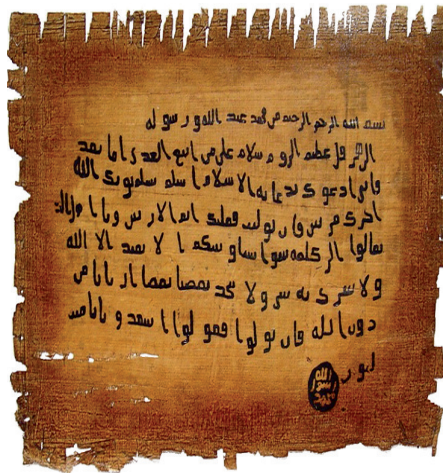 بسم الله الرحمن الرحيم من محمد عبد الله ورسوله
الى هرقل عظيم الروم سلام على من اتبع الهدى اما بعد
فاني ادعوك بدعاية الاسلام اسلم تسلم يوتك الله
اجرك مرتين فان توليت فعليك اثم الاريسين ويا اهل
تعالوا الى كلمة سوا بيننا وبينكم الا نعبد الا الله
ولا نشرك به شيئا ولا يتخذ بعضنا بعضا اربابا من
دون الله فان تولوا فقولوا اشهدوا بانا مس
لمون
الله
رسول
محمد